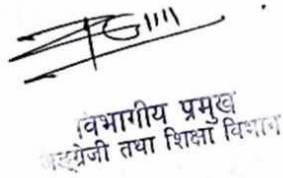 विभागीय प्रमुख
अङ्ग्रेजी तथा शिक्षा विभाग